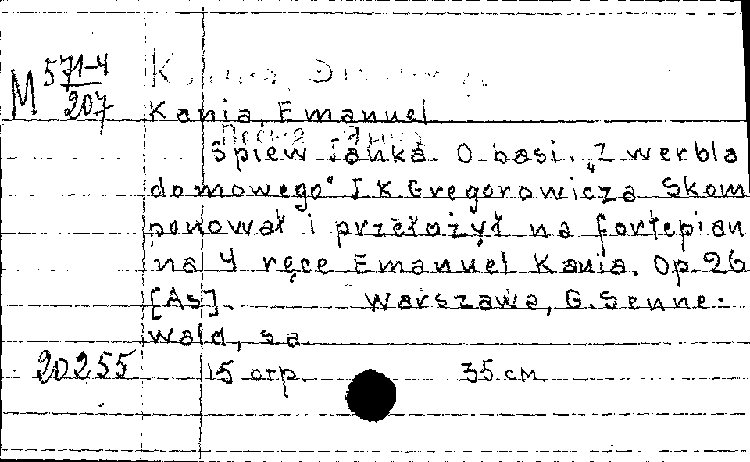 M 571-4
207
Kania, Emanuel
Śpiew Janka. O basi. „Z werbla
domowego" I.K. Gregorowicza Skom
ponował i przełożył na fortepian
na 4 ręce Emanuel Kania. Op. 26
[As]. Warszawa, G. Senne-
wald, sa.
20255 15 стр. 35 см